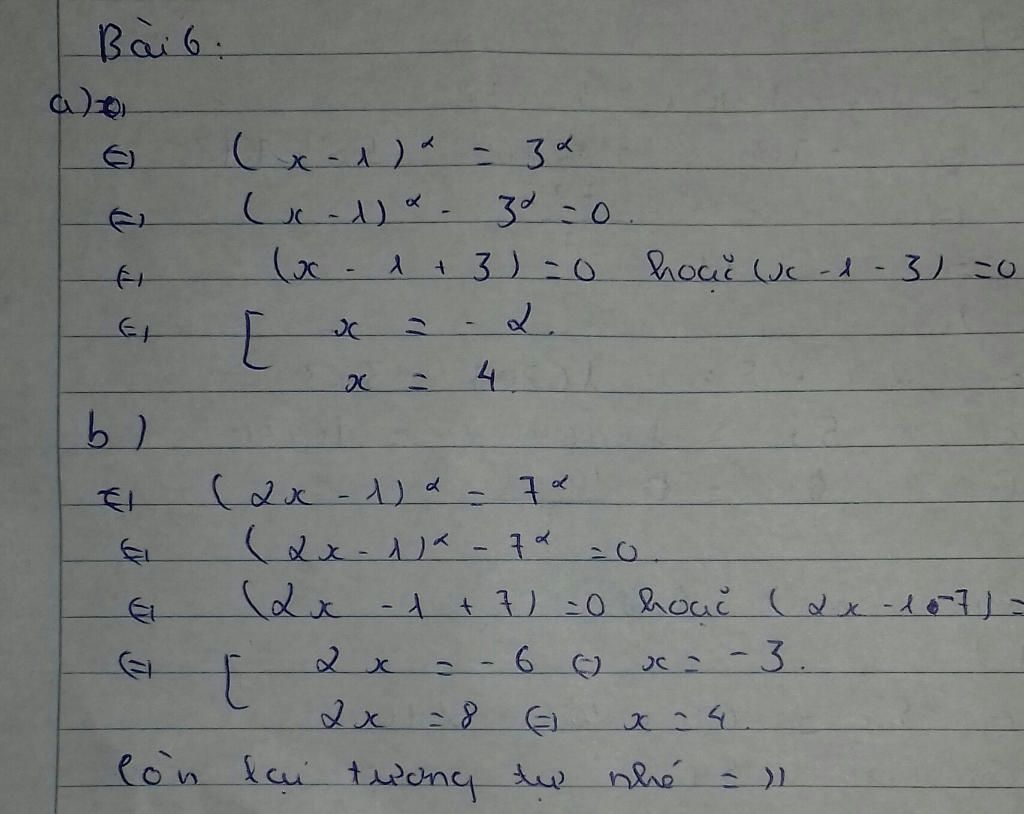 Bài 6:
a)
⇔ (x - 1)² = 3²
⇔ (x - 1)² - 3² = 0.
⇔ (x - 1 + 3) = 0 hoặc (x - 1 - 3) = 0
⇔ [ x = - 2.
x = 4.
b)
⇔ (2x - 1)² = 7²
⇔ (2x - 1)² - 7² = 0.
⇔ (2x - 1 + 7) = 0 hoặc (2x - 1 - 7) =
⇔ [ 2x = - 6 ⇔ x = - 3.
2x = 8 ⇔ x = 4.
Còn lại tương tự nhé = ))